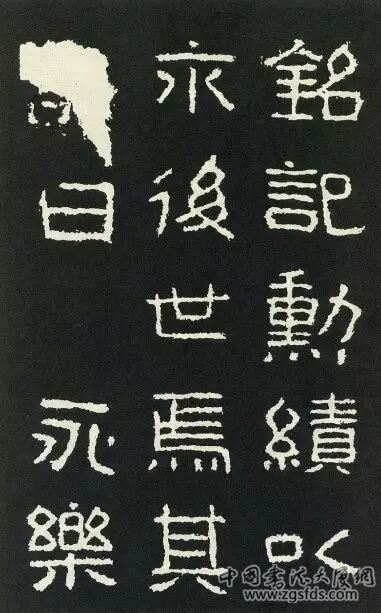 銘記勳績以
示後世焉其
曰永樂
中国书法大赛网
www.zgsfds.com